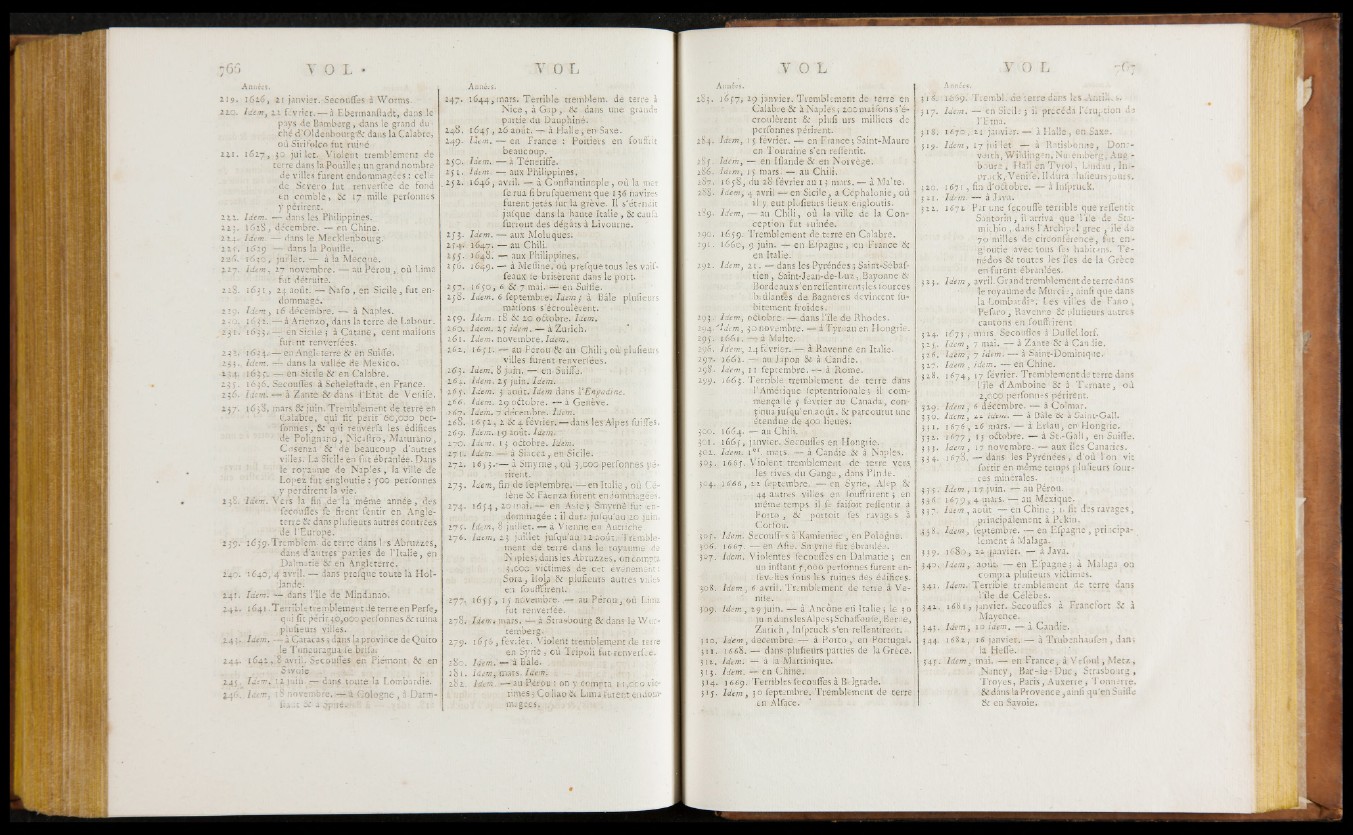 766 VOL.
Années.
219. 1626, 21 janvier. Secousses à Worms.
220. Idem, 22 février. — à Ebermanstadt, dans le
pays de Bamberg, dans le grand du-
ché d'Oldenbourg & dans la Calabre,
où Sirifolco fut ruiné
221. 1627, 30 juillet. Violent tremblement de
terre dans la Pouille; un grand nombre
de villes furent endommagées: celle
de Severo fut renversée de fond
en comble, & 17 mille personnes
y périrent.
222. Idem. — dans les Philippines.
223. 1628, décembre. — en Chine.
224. Idem. — dans le Mecklenbourg.
225. 1629 — dans la Pouille.
226. 1630, juillet. — à la Mecque.
227. Idem, 27 novembre. — au Pérou, où Lima
fut détruite.
228. 1631, 24 août. — Nafo, en Sicile, fut en-
dommagé.
229. Idem, 16 décembre. — à Naples.
230. 1632. — à Arienzo, dans la terre de Labour.
231. 1633. — en Sicile; à Catane, cent maisons
furent renversées.
232. 1634. — en Angleterre & en Suisse.
233. Idem. — dans la vallée de Mexico.
234. 1635. — en Sicile & en Calabre.
235. 1636. Secousses à Schelestadt, en France.
236. Idem. — à Zante & dans l'Etat de Venise.
237. 1638, mars & juin. Tremblement de terre en
Calabre, qui fit périr 60,000 per-
sonnes, & qui renversa les édifices
de Polignano, Nicastro, Maturano,
Cosenza & de beaucoup d'autres
villes. La Sicile en fut ébranlée. Dans
le royaume de Naples, la ville de
Lopez fut engloutie: 500 personnes
y perdirent la vie.
238. Idem. Vers la fin de la même année, des
secousses se firent sentir en Angle-
terre & dans plusieurs autres contrées
de l'Europe.
239. 1639. Tremblem. de terre dans les Abruzzes,
dans d'autres parties de l'Italie, en
Dalmatie & en Angleterre.
240. 1640, 4 avril. — dans presque toute la Hol-
lande.
241. Idem. — dans l'île de Mindanao.
242. 1641. Terrible tremblement de terre en Perse,
qui fit périr 40,000 personnes & ruina
plusieurs villes.
243. Idem. — à Caracas; dans la province de Quito
le Tuncuragua se brisa.
244. 1642. 8 avril. Secousses en Piémont & en
Savoie
245. Idem, 12 juin — dans toute la Lombardie.
246. Idem, 18 novembre. — à Cologne, à Darm-
stadt & à Spire.
VOL
Années.
247. 1644, mars. Terrible tremblem. de terre à
Nice, à Gap, & dans une grande
partie du Dauphiné.
248. 1645, 26 août. — à Halle, en Saxe.
249. Idem. — en France: Poitiers en souffrit
beaucoup.
250. Idem. — à Ténériffe.
251. Idem. — aux Philippines.
252. 1646, avril. — à Constantinople, où la mer
se rua si brusquement que 136 navires
furent jetés sur la grève. Il s'étendit
jusque dans la haute Italie, & causa
surtout des dégâts à Livourne.
253. Idem. — aux Moluques.
254. 1647. — au Chili.
255. 1648. — aux Philippines.
256. 1649. — à Messine, où presque tous les vais-
seaux se brisèrent dans le port.
257. 1650, 6 & 7 mai. — en Suisse.
258. Idem. 6 septembre. Idem; à Bâle plusieurs
maisons s'écroulèrent.
259. Idem. 18 & 20 octobre. Idem.
260. Idem. 25 idem. — à Zurich.
261. Idem. novembre. Idem.
262. 1651. — au Pérou & au Chili, où plusieurs
villes furent renversées.
263. Idem. 8 juin. — en Suisse.
264. Idem. 25 juin. Idem.
265. Idem. 3 août. Idem dans l'Engadine.
266. Idem. 29 octobre. — à Genève.
267. Idem. 7 décembre. Idem.
268. 1652, 2 & 4 février. — dans les Alpes suisses.
269. Idem. 19 août. Idem.
270. Idem. 15 octobre. Idem.
271. Idem. — à Siacca, en Sicile.
272. 1653. — à Smyrne, où 3,000 personnes pé-
rirent.
273. Idem, fin de septembre. — en Italie, où Cé-
sène & Faenza furent endommagées.
274. 1654, 20 mai. — en Asie; Smyrne fut en-
dommagée: il dura jusqu'au 20 juin.
275. Idem, 8 juillet. — à Vienne en Autriche.
276. Idem, 23 juillet jusqu'au 12 août. Tremble-
ment de terre dans le royaume de
Naples; dans les Abruzzes, on compta
3,000 victimes de cet événement:
Sora, Isola & plusieurs autres villes
en souffrirent.
277. 1655, 15 novembre. — au Pérou, où Lima
fut renversée.
278. Idem, mars. — à Strasbourg & dans le Wur-
temberg.
279. 1656, février. Violent tremblement de terre
en Syrie, où Tripoli fut renversée.
280. Idem. — à Bâle.
281. Idem, mars. Idem.
282. Idem. — au Pérou: on y compta 11,000 vic-
times; Collao & Lima furent endom-
magées.
VOL
Années.
283. 1657, 29 janvier. Tremblement de terre en
Calabre & à Naples; 200 maisons s'é-
croulèrent & plusieurs milliers de
personnes périrent.
284. Idem, 15 février. — en France; Saint-Maure
en Touraine s'en ressentit.
285. Idem, — en Islande & en Norvège.
286. Idem, 15 mars. — au Chili.
287. 1658, du 28 février au 13 mars. — à Malte.
288. Idem, 4 avril — en Sicile, à Céphalonie, où
il y eut plusieurs lieux engloutis.
289. Idem, — au Chili, où la ville de la Con-
ception fut ruinée.
290. 1659. Tremblement de terre en Calabre.
291. 1660, 9 juin. — en Espagne, en France &
en Italie.
292. Idem, 21. — dans les Pyrénées; Saint-Sébas-
tien, Saint-Jean-de-Luz, Bayonne &
Bordeaux s'en ressentirent; les sources
brûlantes de Bagnères devinrent su-
bitement froides.
293. Idem, octobre. — dans l'île de Rhodes.
294. Idem, 30 novembre. — à Tyrnau en Hongrie.
295. 1661. — à Malte.
296. Idem, 24 février. — à Ravenne en Italie.
297. 1662. — au Japon & à Candie.
298. Idem, 11 septembre. — à Rome.
299. 1663. Terrible tremblement de terre dans
l'Amérique septentrionale; il com-
mença le 5 février au Canada, con-
tinua jusqu'en août, & parcourut une
étendue de 400 lieues.
300. 1664. — au Chili.
301. 1665, janvier. Secousses en Hongrie.
302. Idem. 1er mars. — à Candie & à Naples.
303. 1665. Violent tremblement de terre vers
les rives du Gange, dans l'Inde.
304. 1666, 22 septembre. — en Syrie, Alep &
44 autres villes en souffrirent; en
même temps il se faisoit ressentir à
Porto, & portoit ses ravages à
Corfou.
305. Idem. Secousses à Kaminiec, en Pologne.
306. 1667. — en Asie. Smyrne fut ébranlée.
307. Idem. Violentes secousses en Dalmatie; en
un instant 7,000 personnes furent en-
sevelies sous les ruines des édifices.
308. Idem, 6 avril. Tremblement de terre à Ve-
nise.
309. Idem, 29 juin. — à Ancône en Italie; le 30
juin dans les Alpes; Schaffouse, Berne,
Zurich, Inspruck s'en ressentirent.
310. Idem, décembre. — à Porto, en Portugal.
311. 1668. — dans plusieurs parties de la Grèce.
312. Idem. — à la Martinique.
313. Idem. — en Chine.
314. 1669. Terribles secousses à Belgrade.
315. Idem, 30 septembre. Tremblement de terre
en Alsace.
VOL 767
Années.
316. 1669. Trembl. de terre dans les Antilles.
317. Idem. — en Sicile; il précéda l'éruption de
l'Etna.
318. 1670, 22 janvier. — à Halle, en Saxe.
319. Idem, 17 juillet — à Ratisbonne, Dona-
Nuremberg; Aug-
bourg, Hall en Tyrol, Lindau, Ins-
pruck, Venise. Il dura plusieurs jours.
320. 1671, fin d'octobre. — à Inspruck.
321. Idem. — à Java.
322. 1672. Par une secousse terrible que ressentit
Santorin, il arriva que l'île de Sta-
michio, dans l'Archipel grec, île de
70 milles de circonférence, fut en-
gloutie avec tous ses habitans. Té-
nédos & toutes les îles de la Grèce
en furent ébranlées.
323. Idem, avril. Grand tremblement de terre dans
le royaume de Murcie; ainsi que dans
la Lombardie. Les villes de Fano,
Pesaro, Ravenne & plusieurs autres
cantons en souffrirent.
324. 1673, mars. Secousses à Dusseldorf.
325. Idem, 7 mai. — à Zante & à Candie.
326. Idem, 7 idem. — à Saint-Dominique.
327. Idem, idem. — en Chine.
328. 1674, 17 février. Tremblement de terre dans
l'île d'Amboine & à Ternate, où
2,000 personnes périrent.
329. Idem, 6 décembre. — à Colmar.
330. Idem, 22 idem. — à Bâle & à Saint-Gall.
331. 1676, 26 mars. — à Erlau, en Hongrie.
332. 1677, 13 octobre. — à St.-Gall, en Suisse.
333. Idem, 17 novembre. — aux îles Canaries.
334. 1678. — dans les Pyrénées, d'où l'on vit
sortir en même temps plusieurs sour-
ces minérales.
335. Idem, 17 juin. — au Pérou.
336. 1679, 4 mars. — au Mexique.
337. Idem, août — en Chine; il fit des ravages,
principalement à Pékin.
338. Idem, septembre. — en Espagne, principa-
lement à Malaga.
339. 1680, 22 janvier. — à Java.
340. Idem, août. — en Espagne; à Malaga on
compta plusieurs victimes.
341. Idem. Terrible tremblement de terre dans
l'île de Célèbes.
342. 1681, janvier. Secousses à Francfort & à
Mayence.
343. Idem, 10 idem. — à Candie.
344. 1682, 16 janvier. — à Trubenhausen, dans
la Hesse.
345. Idem, mai. — en France; à Vesoul, Metz,
Nancy, Bar-le-Duc, Strasbourg,
Troyes, Paris, Auxerre, Tonnerre,
& dans la Provence, ainsi qu'en Suisse
& en Savoie.